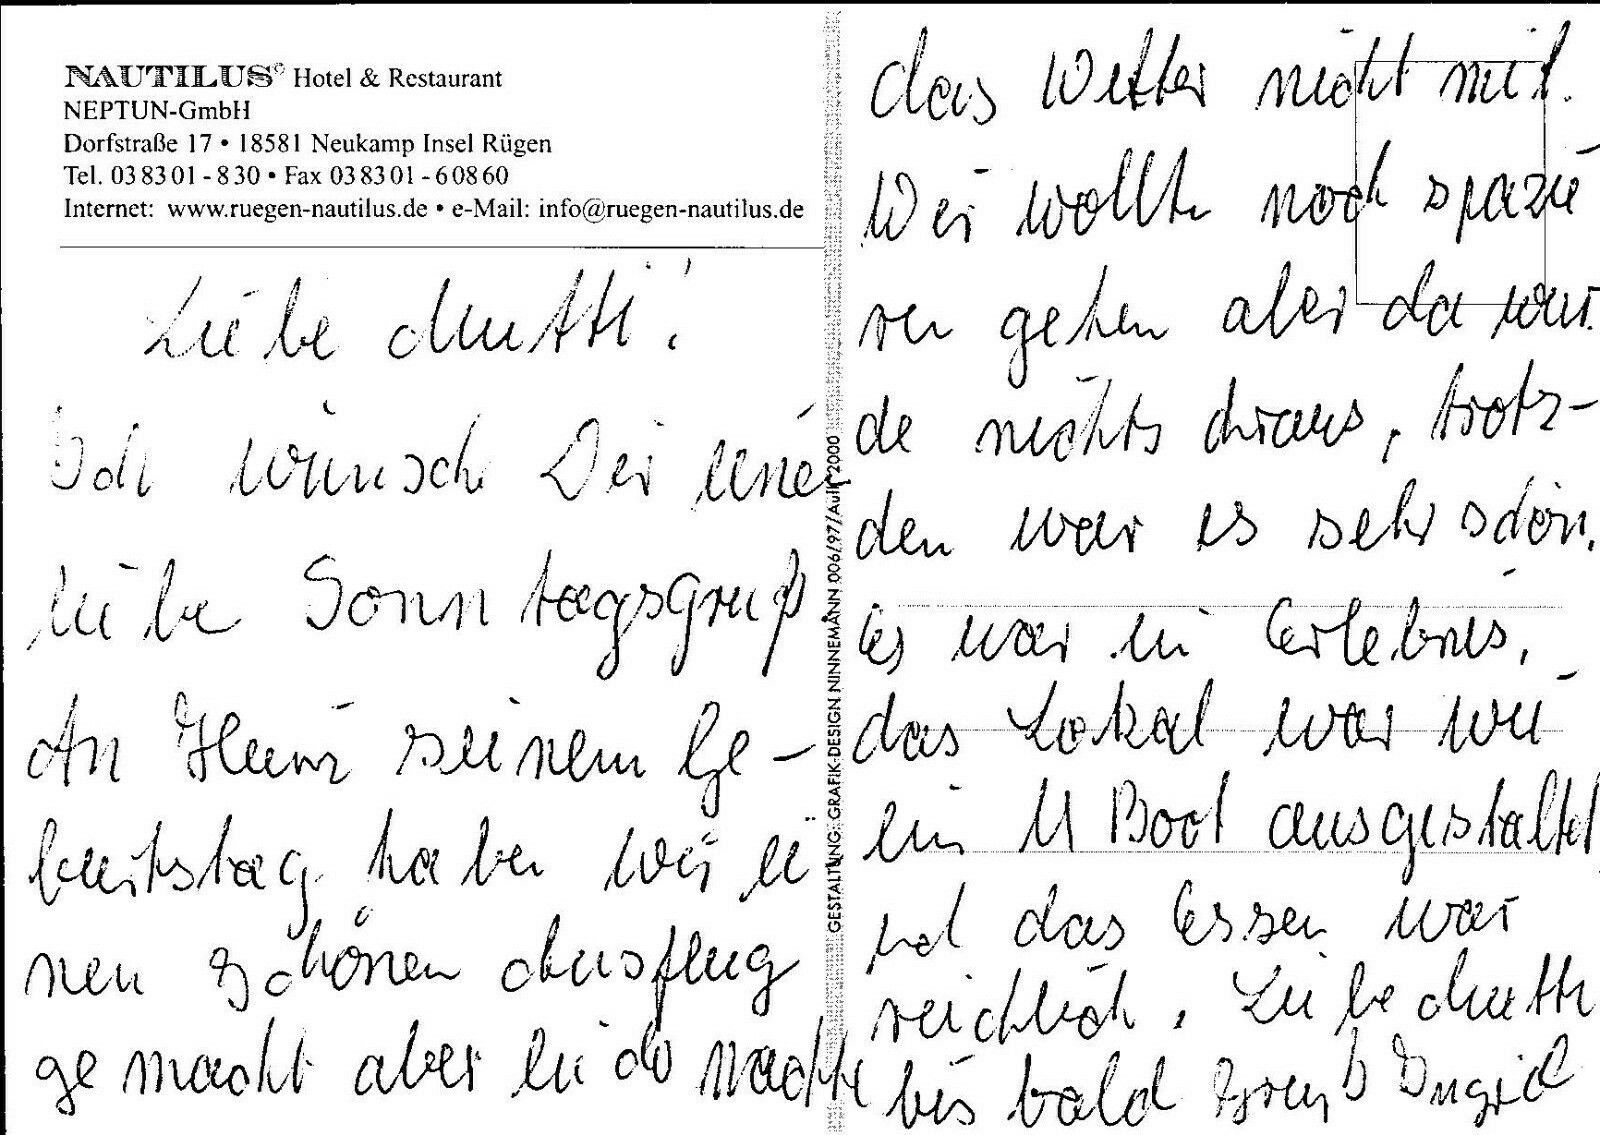 NAUTILUS© Hotel & Restaurant
NEPTUN-GmbH
Dorfstraße 17 • 18581 Neukamp Insel Rügen
Tel. 038301-830 • Fax 038301-60860
Internet: www.ruegen-nautilus.de • e-Mail: info@ruegen-nautilus.de
Liebe Mutti!
Ich wünsch Dir einen
liebe Sonntagsgruß
An Heinz seinem Ge-
burtstag haben wir ei
nen schönen Ausflug
gemacht aber leider machte
GESTALTUNG: GRAFIK-DESIGN NINNEMANN 006/97/Aufl/2000
das Wetter nicht mit.
Wir wollte noch spazie
ren gehen aber da wur
de nichts draus, trotz-
den war es sehr schön.
Es war ein Erlebnis,
das Lokal war wie
ein U Boot ausgestaltet
und das Essen war
reichlich. Liebe Mutti
bis bald Gruß Ingrid